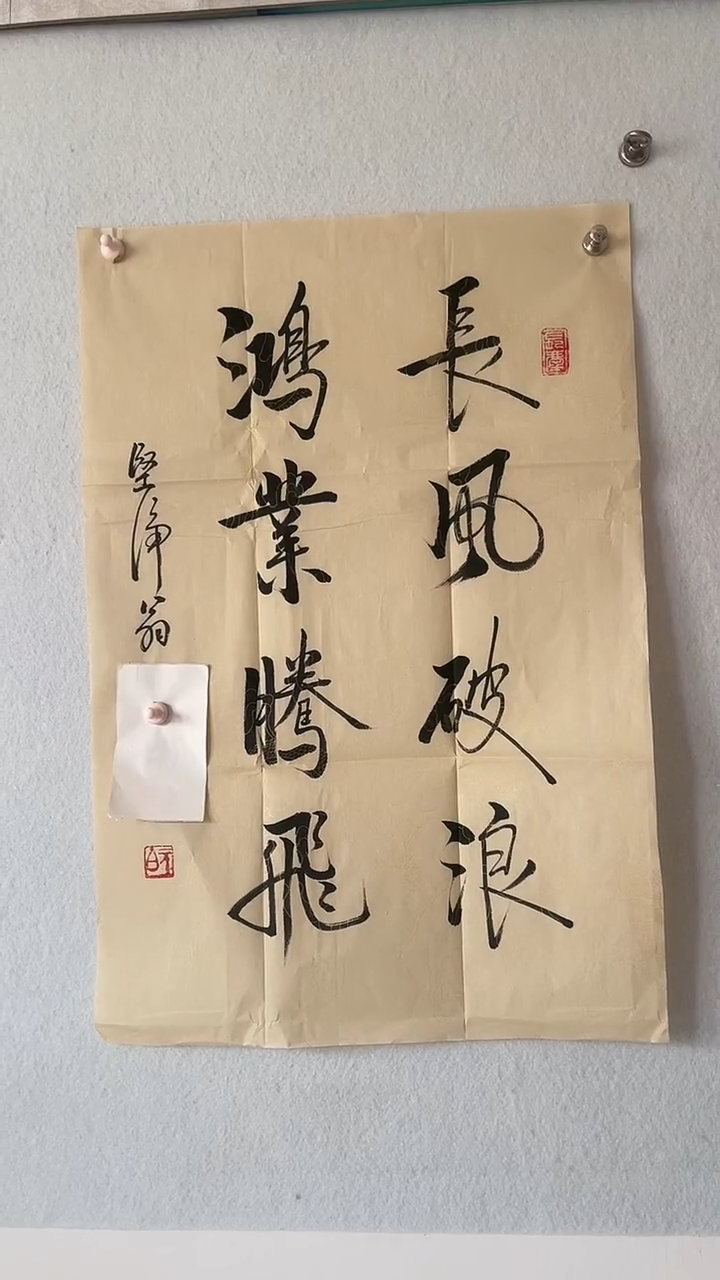 長風破浪
鴻業騰飛
堅淨翁